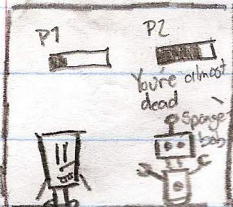 P1
P2
You're almost
dead
Sponge-
bob